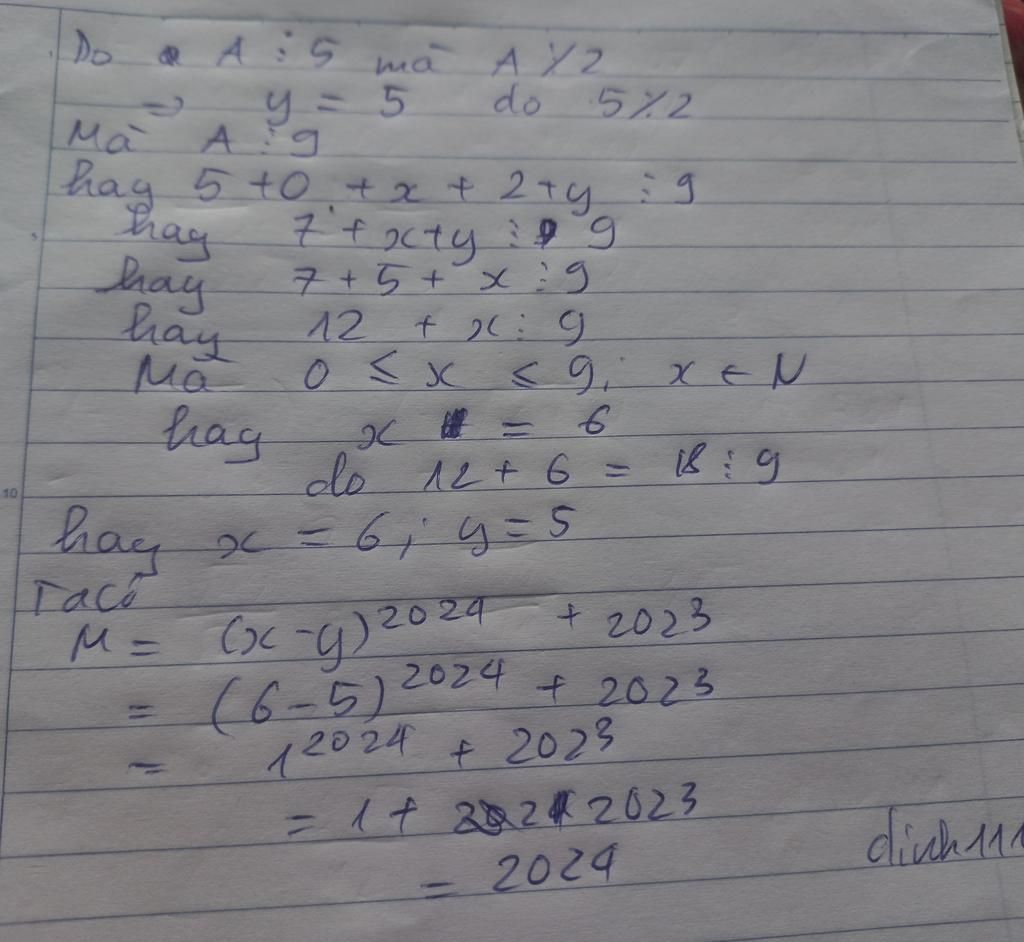 Do A ⋮ 5 mà A ⋮̸ 2
=> y = 5 do 5 ⋮̸ 2
Mà A ⋮ 9
hay 5 + 0 + x + 2 + y ⋮ 9
hay 7 + x + y ⋮ 9
hay 7 + 5 + x ⋮ 9
hay 12 + x ⋮ 9
Mà 0 ≤ x ≤ 9; x ∈ N
hay x = 6
do 12 + 6 = 18 ⋮ 9
10
hay x = 6; y = 5
Ta có
M = (x - y)^2024 + 2023
= (6 - 5)^2024 + 2023
= 1^2024 + 2023
= 1 + 2023
= 2024
dinh111